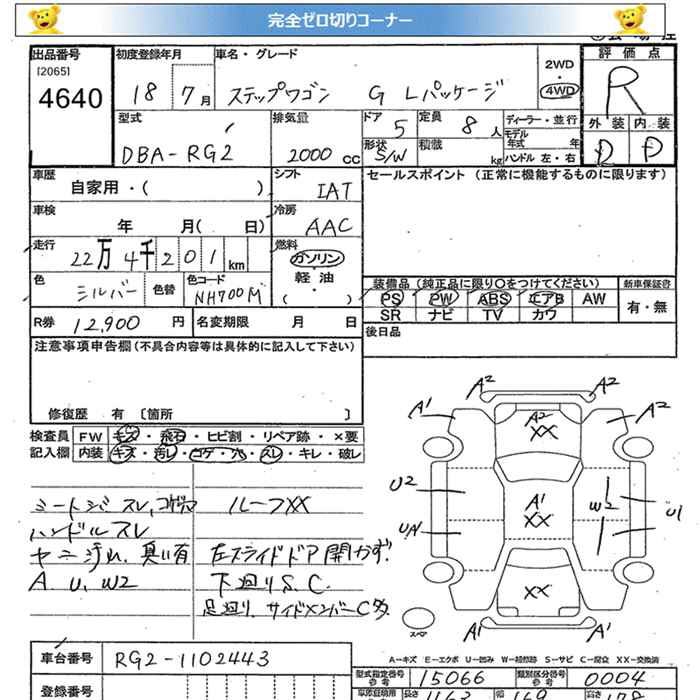 完全ゼロ切りコーナー
出品番号 初度登録年月 車名・グレード 2WD・4WD 評価点
[2065]
4640 18 7月 ステップワゴン G Lパッケージ R
型式 排気量 ドア 5 定員 8人 ディーラー・並行 外装 内装
DBA-RG2 2000cc 形状 S/W 積載 kg モデル年式 年 ハンドル 左・右 D D
車歴 自家用・( ) シフト IAT セールスポイント (正常に機能するものに限ります)
車検 年 月( 日) 冷房 AAC
走行 22万4千201km 燃料 ガソリン・軽油・( )
色 シルバー 色替 色コード NH700M 装備品 (純正品に限り○をつけてください) 新車保証書
PS PW ABS エアB AW 有・無
SR ナビ TV カワ
R券 12,900円 名変期限 月 日 後日品
注意事項申告欄 (不具合内容等は具体的に記入して下さい)
修復歴 有 〔箇所 〕
検査員 FW キズ・飛石・ヒビ割・リペア跡・×要
記入欄 内装 キズ・汚レ・コゲ・穴・スレ・キレ・破レ
シートシワ スレ、コゲ穴 ルーフXX
ハンドルスレ
ヤニ汚れ、臭い有 左スライドドア開かず!
A U、W2 下廻りS、C
足廻り、サイドメンバーC多
A2 A2
A1 A2 XX A2
U2 A1 XX W2 U1
UA1
XX
スペア A1 A1
A-キズ E-エクボ U-凹み W-補修跡 S-サビ C-腐食 XX-交換済
車台番号 RG2-1102443 型式指定番号 参考 15066 類別区分番号 参考 0004
登録番号